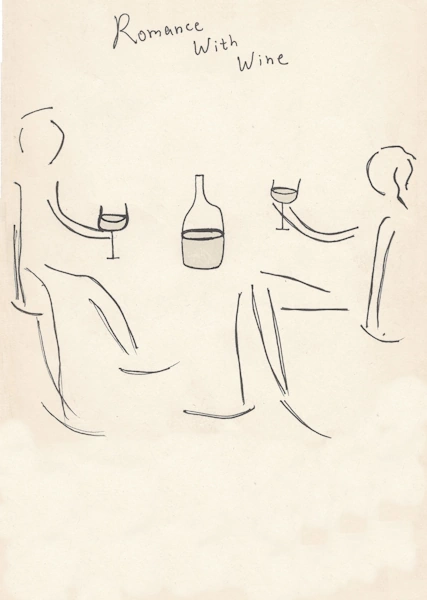 Romance
With
Wine